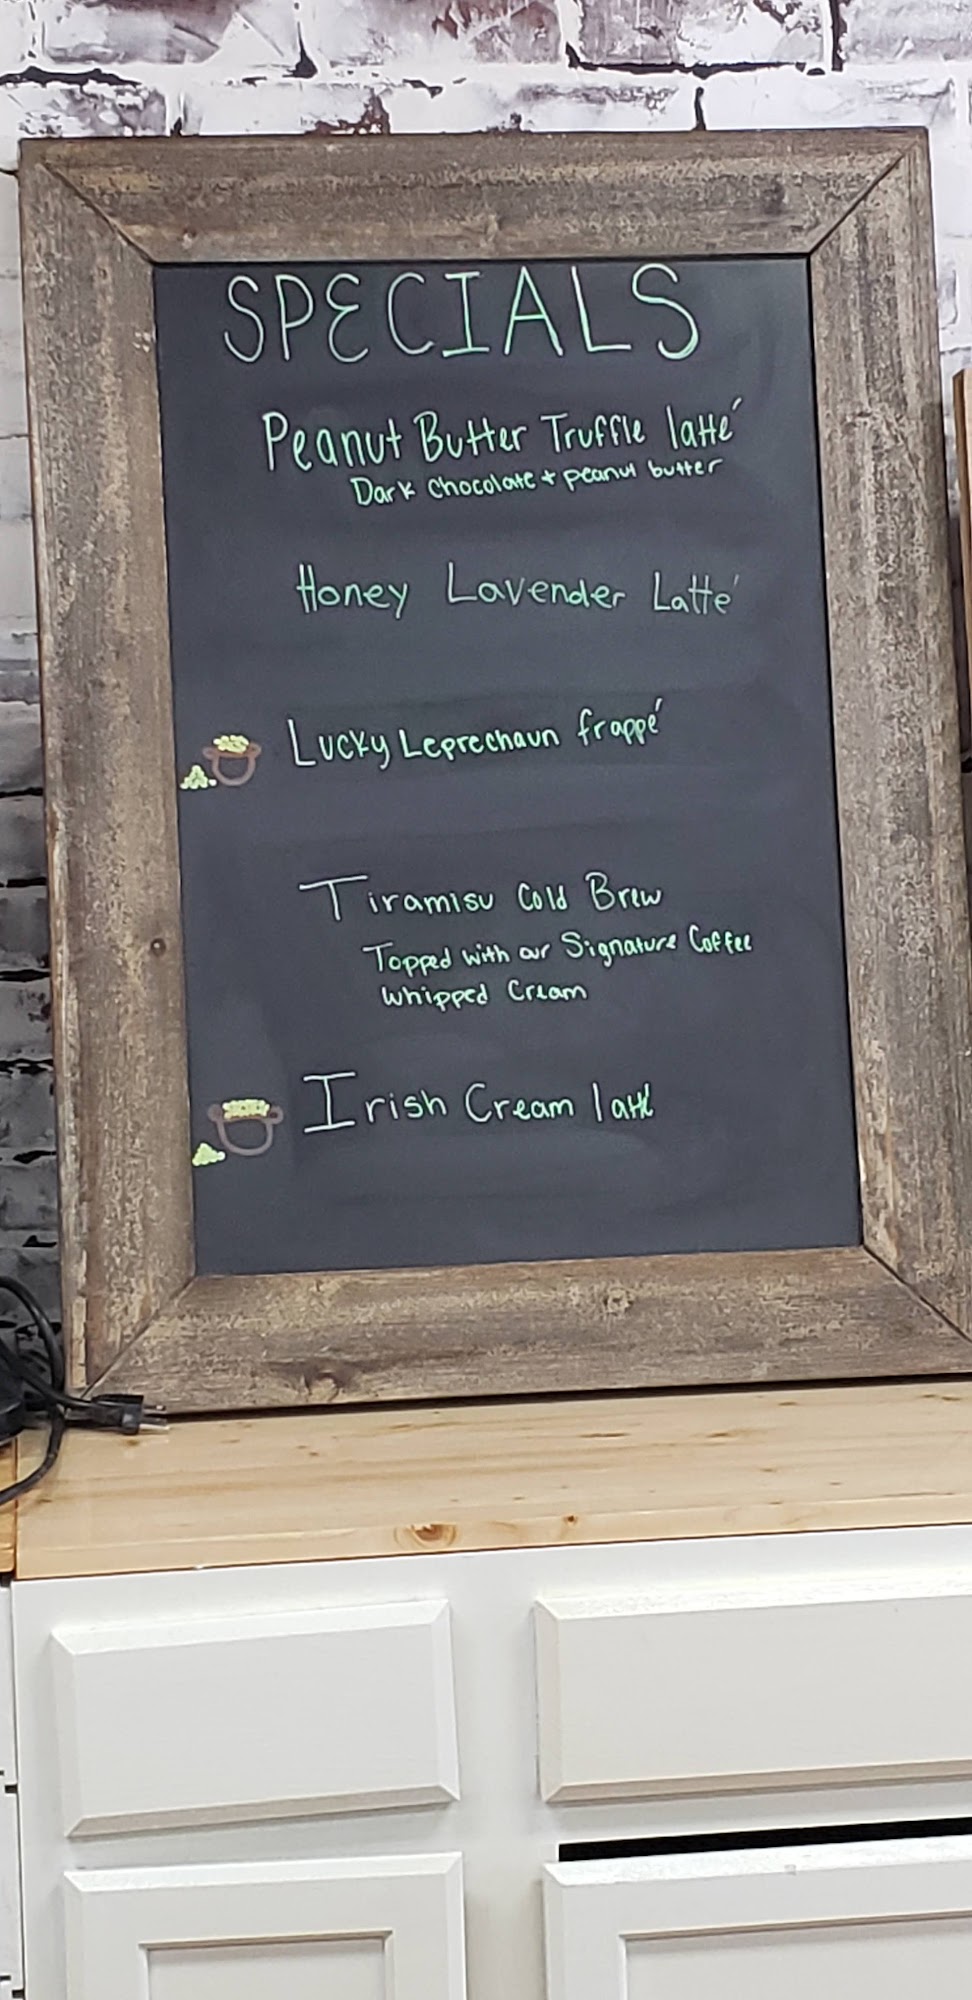 SPECIALS
Peanut Butter Truffle latté
Dark Chocolate + peanut butter
Honey Lavender Latté
Lucky Leprechaun frappé
Tiramisu Cold Brew
Topped with our Signature Coffee
Whipped Cream
Irish Cream latté